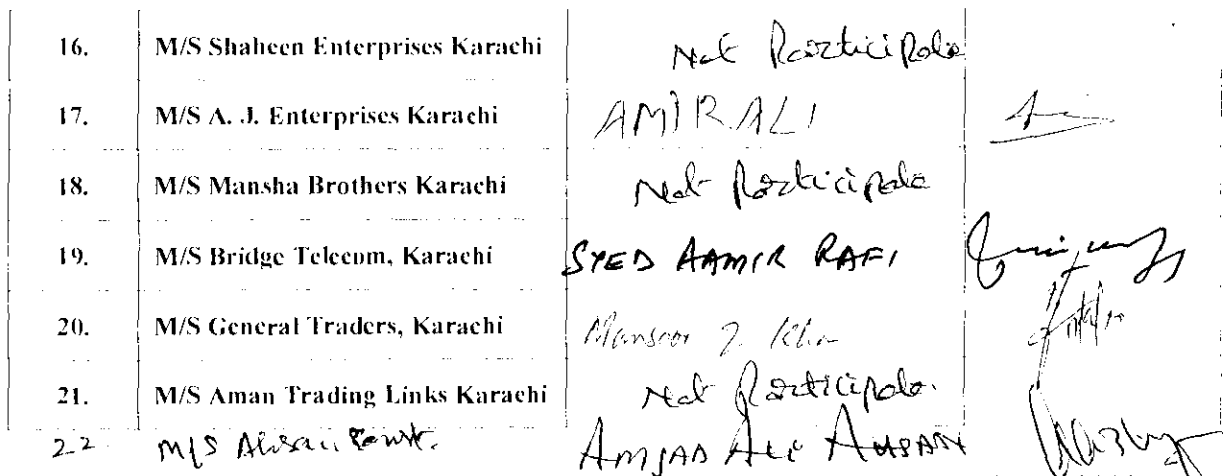 16. M/S Shaheen Enterprises Karachi Not Participate
17. M/S A. J. Enterprises Karachi AMIR ALI
18. M/S Mansha Brothers Karachi Not Participate
19. M/S Bridge Telecom, Karachi SYED AAMIR RAFI
20. M/S General Traders, Karachi Mansoor Khan
21. M/S Aman Trading Links Karachi Not Participate.
22 M/S AMJAD ALI AHSAN